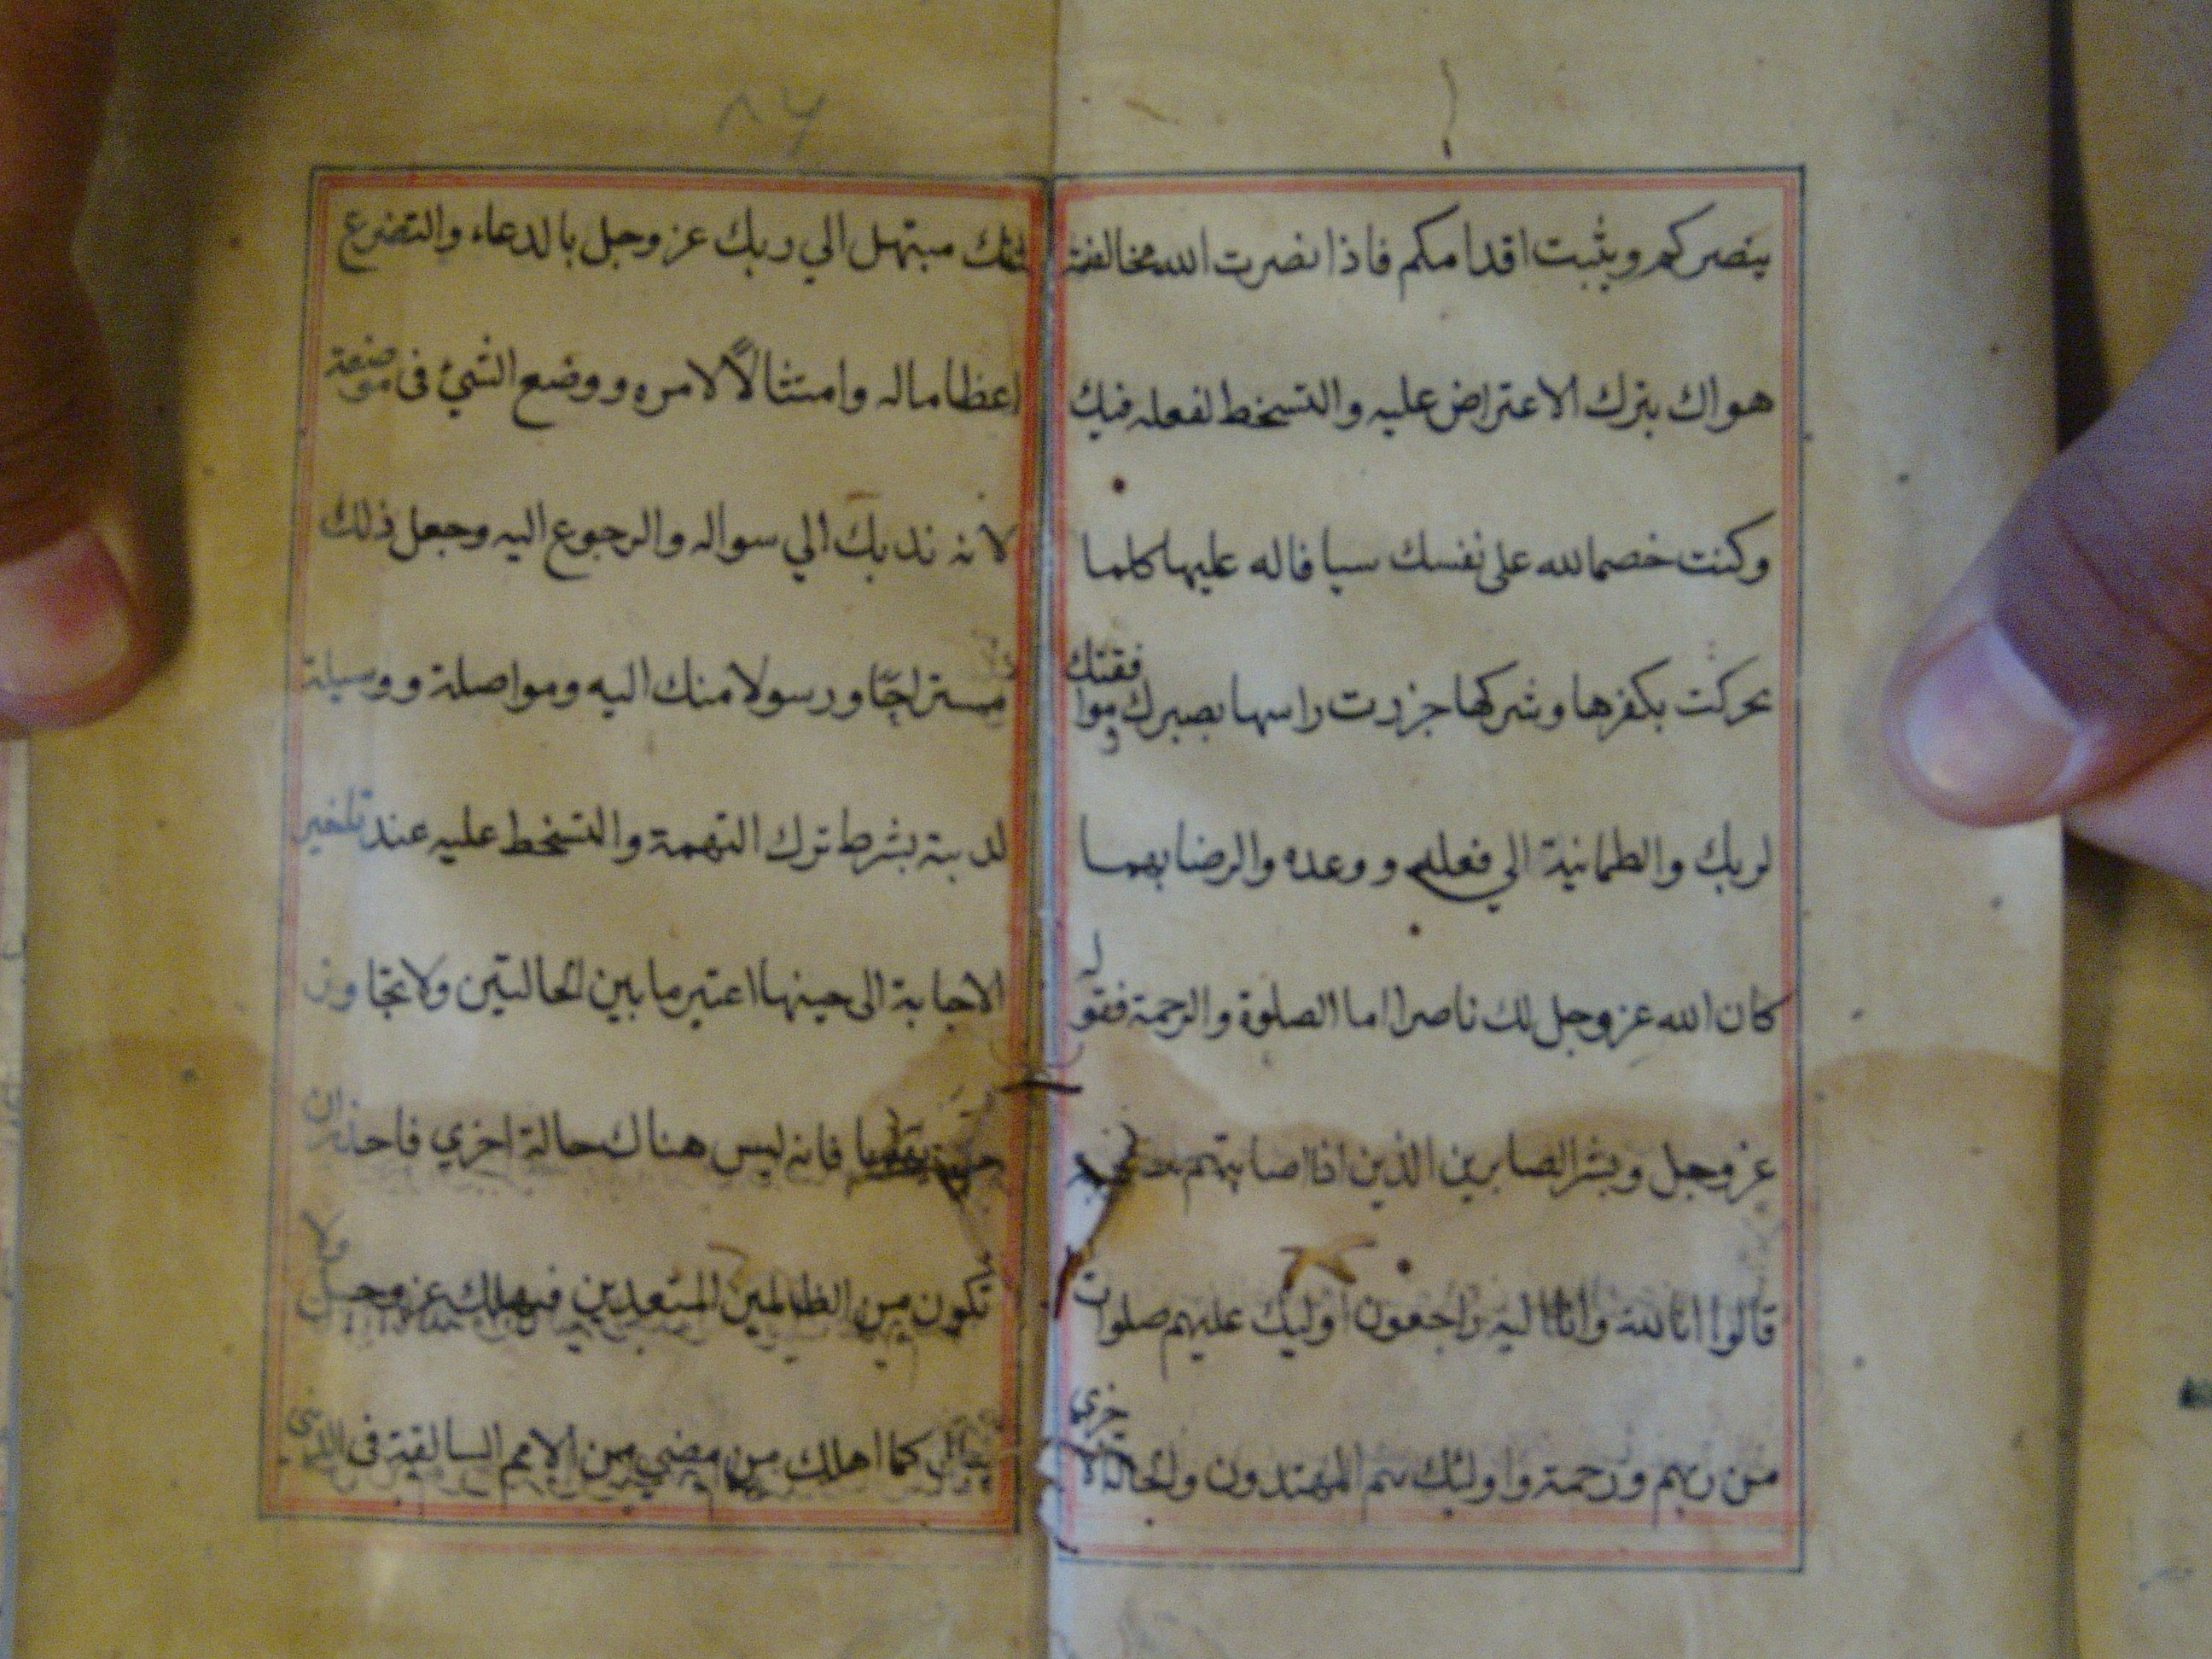 ينصركم ويثبت اقدامكم فاذا نصرت الله مخالفة
هواك بترك الاعتراض عليه والتسخط لفعله فيك
وكنت خصما لله على نفسك سيافا له عليها كلما
تحركت بكفرها وشركها جززت راسها بصبرك وموافقتك
لربك والطمانية الي فعله ووعده والرضا بهما
كان الله عز وجل لك ناصرا اما الصلوة والرحمة فقوله
عز وجل وبشر الصابرين الذين اذا اصابتهم
قالوا انا لله وانا اليه راجعون اوليك عليهم صلوات
من ربهم ورحمة واوليك هم المهتدون والحالة الاخرى
٨٧
مبتهل الي ربك عز وجل بالدعاء والتضرع
اعظاما له وامتثالاً لامره ووضع الشيئ فى موضعه
لانه ندبك الي سواله والرجوع اليه وجعل ذلك
مستراحا ورسولا منك اليه ومواصلة ووسيلة
لديه بشرط ترك التهمة والتسخط عليه عند تاخير
الاجابة الى حينها اعتبر ما بين الحالتين ولا تجاوز
فانه ليس هناك حالة اخري فاحذر ان
تكون من الظالمين المتعدين فيهلك عز وجل ولا
يبالي كما اهلك من مضي من الامم السالفة فى الدني